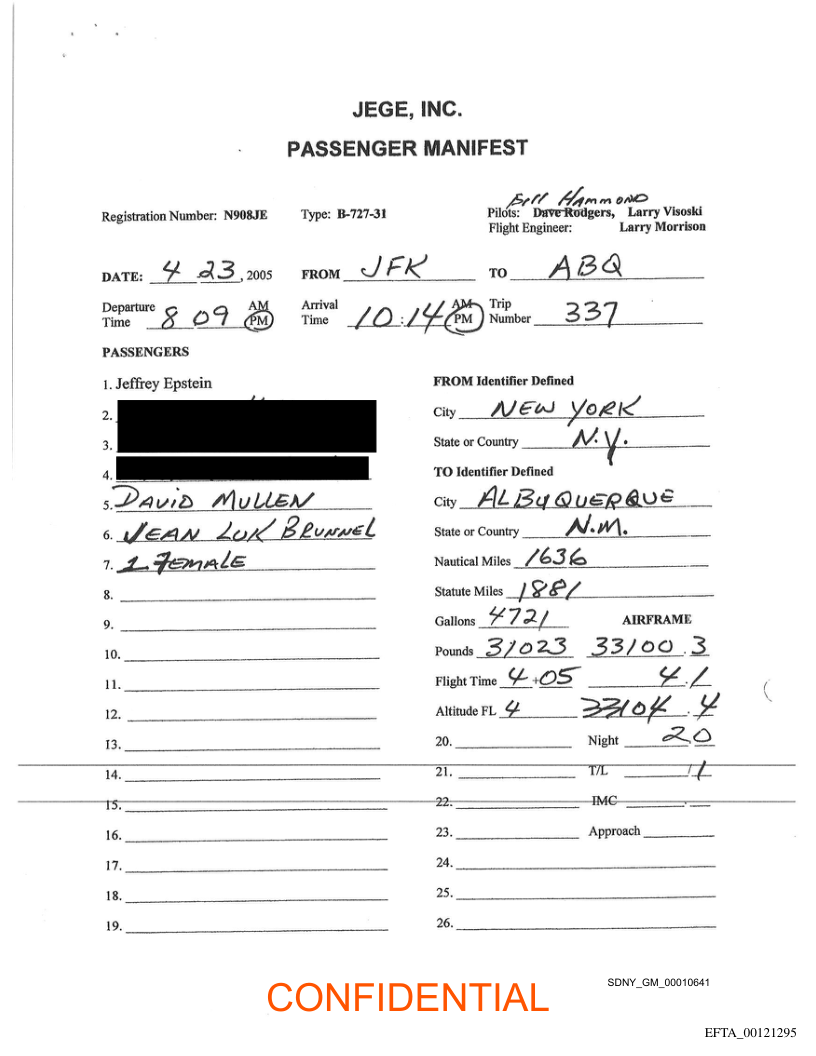 JEGE, INC.
PASSENGER MANIFEST
Bill Hammond
Registration Number: N908JE Type: B-727-31 Pilots: Dave Rodgers, Larry Visoski
Flight Engineer: Larry Morrison
DATE: 4 23, 2005 FROM JFK TO ABQ
Departure Time 8 09 AM PM Arrival Time 10:14 AM PM Trip Number 337
PASSENGERS
1. Jeffrey Epstein FROM Identifier Defined
2. City NEW YORK
3. State or Country N.Y.
4. TO Identifier Defined
5. DAVID MULLEN City ALBUQUERQUE
6. JEAN LUK BRUNNEL State or Country N.M.
7. 1 FEMALE Nautical Miles 1636
8. Statute Miles 1881
9. Gallons 4721 AIRFRAME
10. Pounds 31023 33100.3
11. Flight Time 4+05 4.1
12. Altitude FL 4 33104.4
13. 20. Night 2.0
14. 21. T/L 1/1
15. 22. IMC .
16. 23. Approach
17. 24.
18. 25.
19. 26.
SDNY_GM_00010641
CONFIDENTIAL
EFTA_00121295